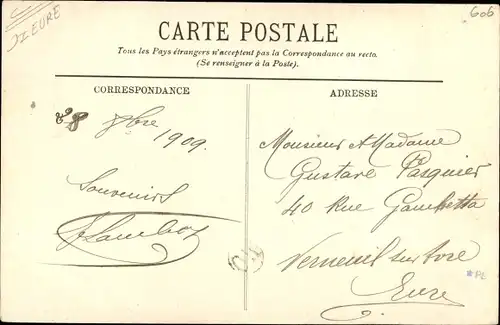 EURE
606
CARTE POSTALE
Tous les Pays étrangers n'acceptent pas la Correspondance au recto.
(Se renseigner à la Poste).
CORRESPONDANCE
8bre
1909.
Souvenirs
ADRESSE
Monsieur & Madame
Gustave Pasquier
40 Rue Gambetta
Verneuil sur Avre
Eure